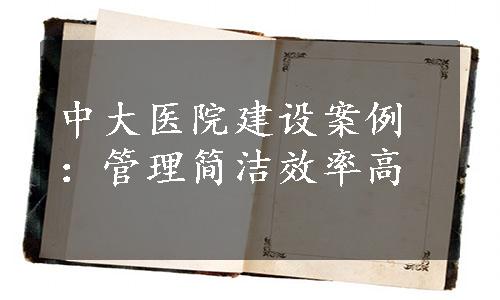 中大医院建设案例
：管理简洁效率高